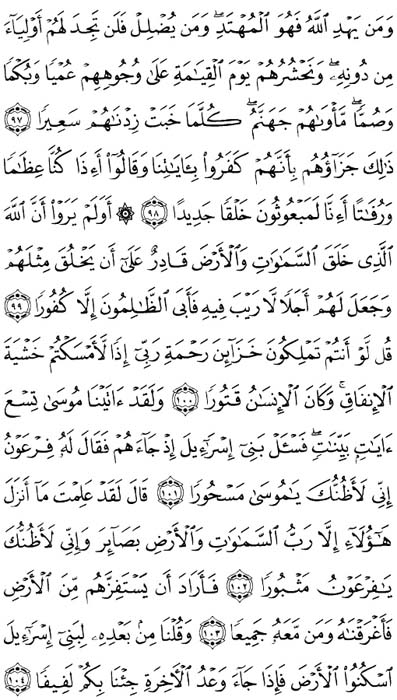 وَمَن يَهْدِ ٱللَّهُ فَهُوَ ٱلْمُهْتَدِ ۖ وَمَن يُضْلِلْ فَلَن تَجِدَ لَهُمْ أَوْلِيَآءَ
مِن دُونِهِۦ ۖ وَنَحْشُرُهُمْ يَوْمَ ٱلْقِيَـٰمَةِ عَلَىٰ وُجُوهِهِمْ عُمْيًا وَبُكْمًا
وَصُمًّا ۖ مَّأْوَىٰهُمْ جَهَنَّمُ ۖ كُلَّمَا خَبَتْ زِدْنَـٰهُمْ سَعِيرًا ٩٧
ذَٰلِكَ جَزَآؤُهُم بِأَنَّهُمْ كَفَرُوا۟ بِـَٔايَـٰتِنَا وَقَالُوٓا۟ أَءِذَا كُنَّا عِظَـٰمًا
وَرُفَـٰتًا أَءِنَّا لَمَبْعُوثُونَ خَلْقًا جَدِيدًا ٩٨ ۞ أَوَلَمْ يَرَوْا۟ أَنَّ ٱللَّهَ
ٱلَّذِى خَلَقَ ٱلسَّمَـٰوَٰتِ وَٱلْأَرْضَ قَادِرٌ عَلَىٰٓ أَن يَخْلُقَ مِثْلَهُمْ
وَجَعَلَ لَهُمْ أَجَلًا لَّا رَيْبَ فِيهِ فَأَبَى ٱلظَّـٰلِمُونَ إِلَّا كُفُورًا ٩٩
قُل لَّوْ أَنتُمْ تَمْلِكُونَ خَزَآئِنَ رَحْمَةِ رَبِّىٓ إِذًا لَّأَمْسَكْتُمْ خَشْيَةَ
ٱلْإِنفَاقِ ۚ وَكَانَ ٱلْإِنسَـٰنُ قَتُورًا ١٠٠ وَلَقَدْ ءَاتَيْنَا مُوسَىٰ تِسْعَ
ءَايَـٰتٍۭ بَيِّنَـٰتٍ ۖ فَسْـَٔلْ بَنِىٓ إِسْرَٰٓءِيلَ إِذْ جَآءَهُمْ فَقَالَ لَهُۥ فِرْعَوْنُ
إِنِّى لَأَظُنُّكَ يَـٰمُوسَىٰ مَسْحُورًا ١٠١ قَالَ لَقَدْ عَلِمْتَ مَآ أَنزَلَ
هَـٰٓؤُلَآءِ إِلَّا رَبُّ ٱلسَّمَـٰوَٰتِ وَٱلْأَرْضِ بَصَآئِرَ وَإِنِّى لَأَظُنُّكَ
يَـٰفِرْعَوْنُ مَثْبُورًا ١٠٢ فَأَرَادَ أَن يَسْتَفِزَّهُم مِّنَ ٱلْأَرْضِ
فَأَغْرَقْنَـٰهُ وَمَن مَّعَهُۥ جَمِيعًا ١٠٣ وَقُلْنَا مِنۢ بَعْدِهِۦ لِبَنِىٓ إِسْرَٰٓءِيلَ
ٱسْكُنُوا۟ ٱلْأَرْضَ فَإِذَا جَآءَ وَعْدُ ٱلْـَٔاخِرَةِ جِئْنَا بِكُمْ لَفِيفًا ١٠٤